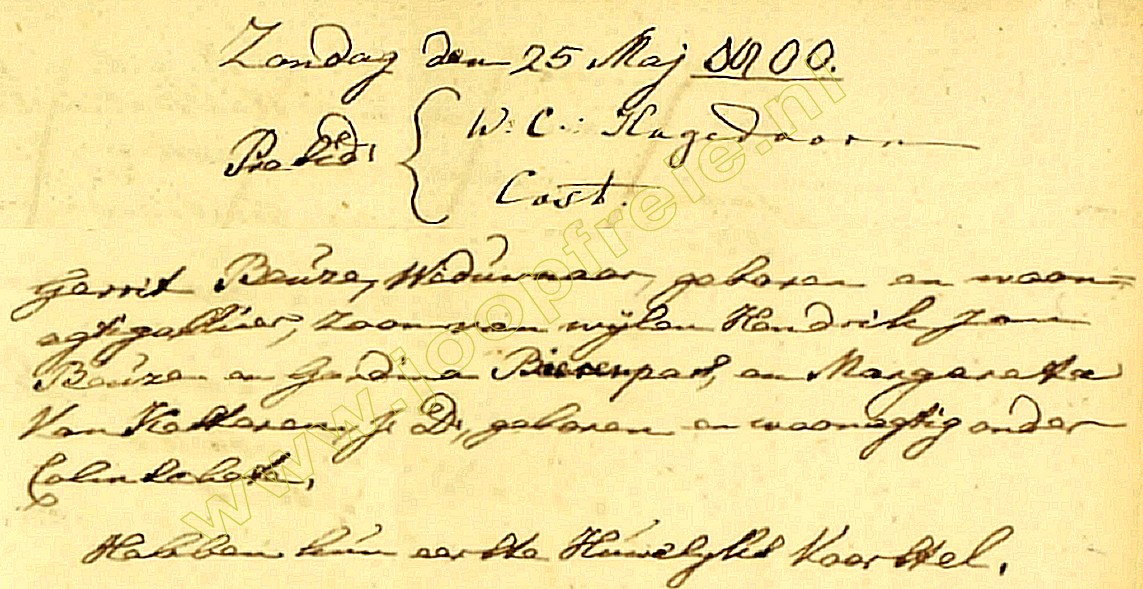 Zondag den 25 Maij 1800.
Præsid: W: C: Hagedoorn
Cast.
Gerrit Beúze, Wedúwnaar, geboren en woon=
agtig alhier, Zoon van wijlen Hendrik Jan
Beúzen en Gerdina Bieren, en Margareta
Van Kotteren J: D:, geboren en woonagtig onder
Colinschate,
Hebben hún eerste Húwelijks Voorstel.
www.joopfreie.nl